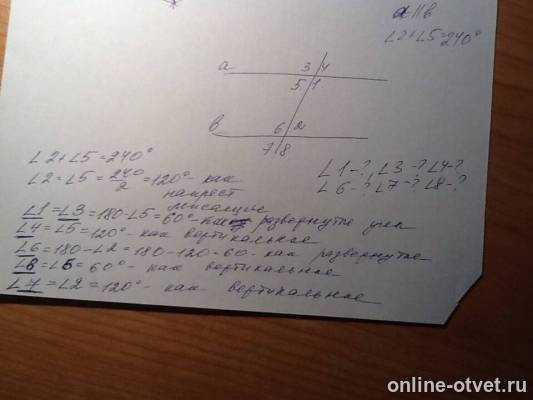 a || в
∠2+∠5=240°
a 3 4
5 1
в 6 2
7 8
∠2+∠5=240°
∠2=∠5=240/2=120°- как
накрест
лежащие
∠1-? ∠3-? ∠4-?
∠6-? ∠7-? ∠8-?
∠1=∠3=180-∠5=60°- как развернутые углы
∠4=∠5=120°- как вертикальное
∠6=180-∠2=180-120=60- как развернутые
∠8=∠6=60°- как вертикальное
∠7=∠2=120°- как вертикальное
online-otvet.ru